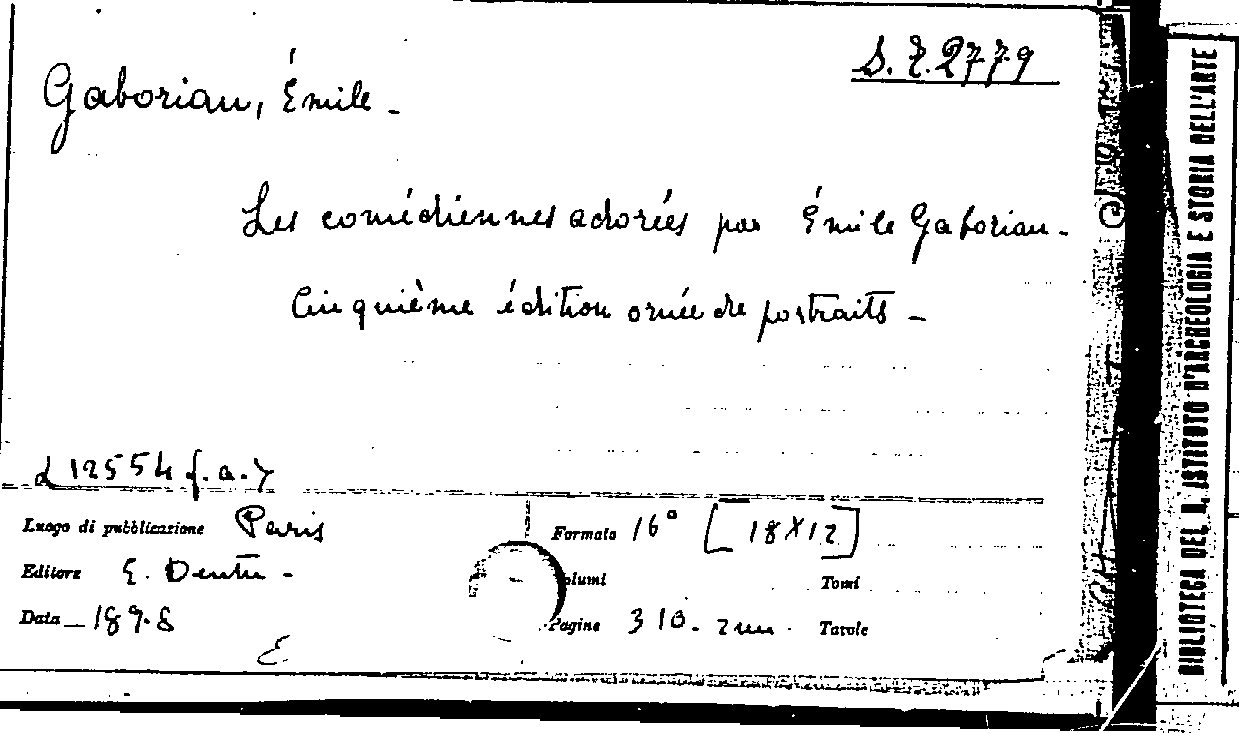 S. T. 2779
Gaboriau, Émile -
Les comédiennes adorées par Émile Gaboriau -
Cinquième édition ornée de portraits -
L 12554 f. a. 7
Luogo di pubblicazione Paris
Formato 16° [18X12]
Editore E. Dentu -
Volumi Tomi
Data - 1878
Pagine 310. Tavole
E.
BIBLIOTECA DEL R. ISTITUTO D'ARCHEOLOGIA E STORIA DELL'ARTE